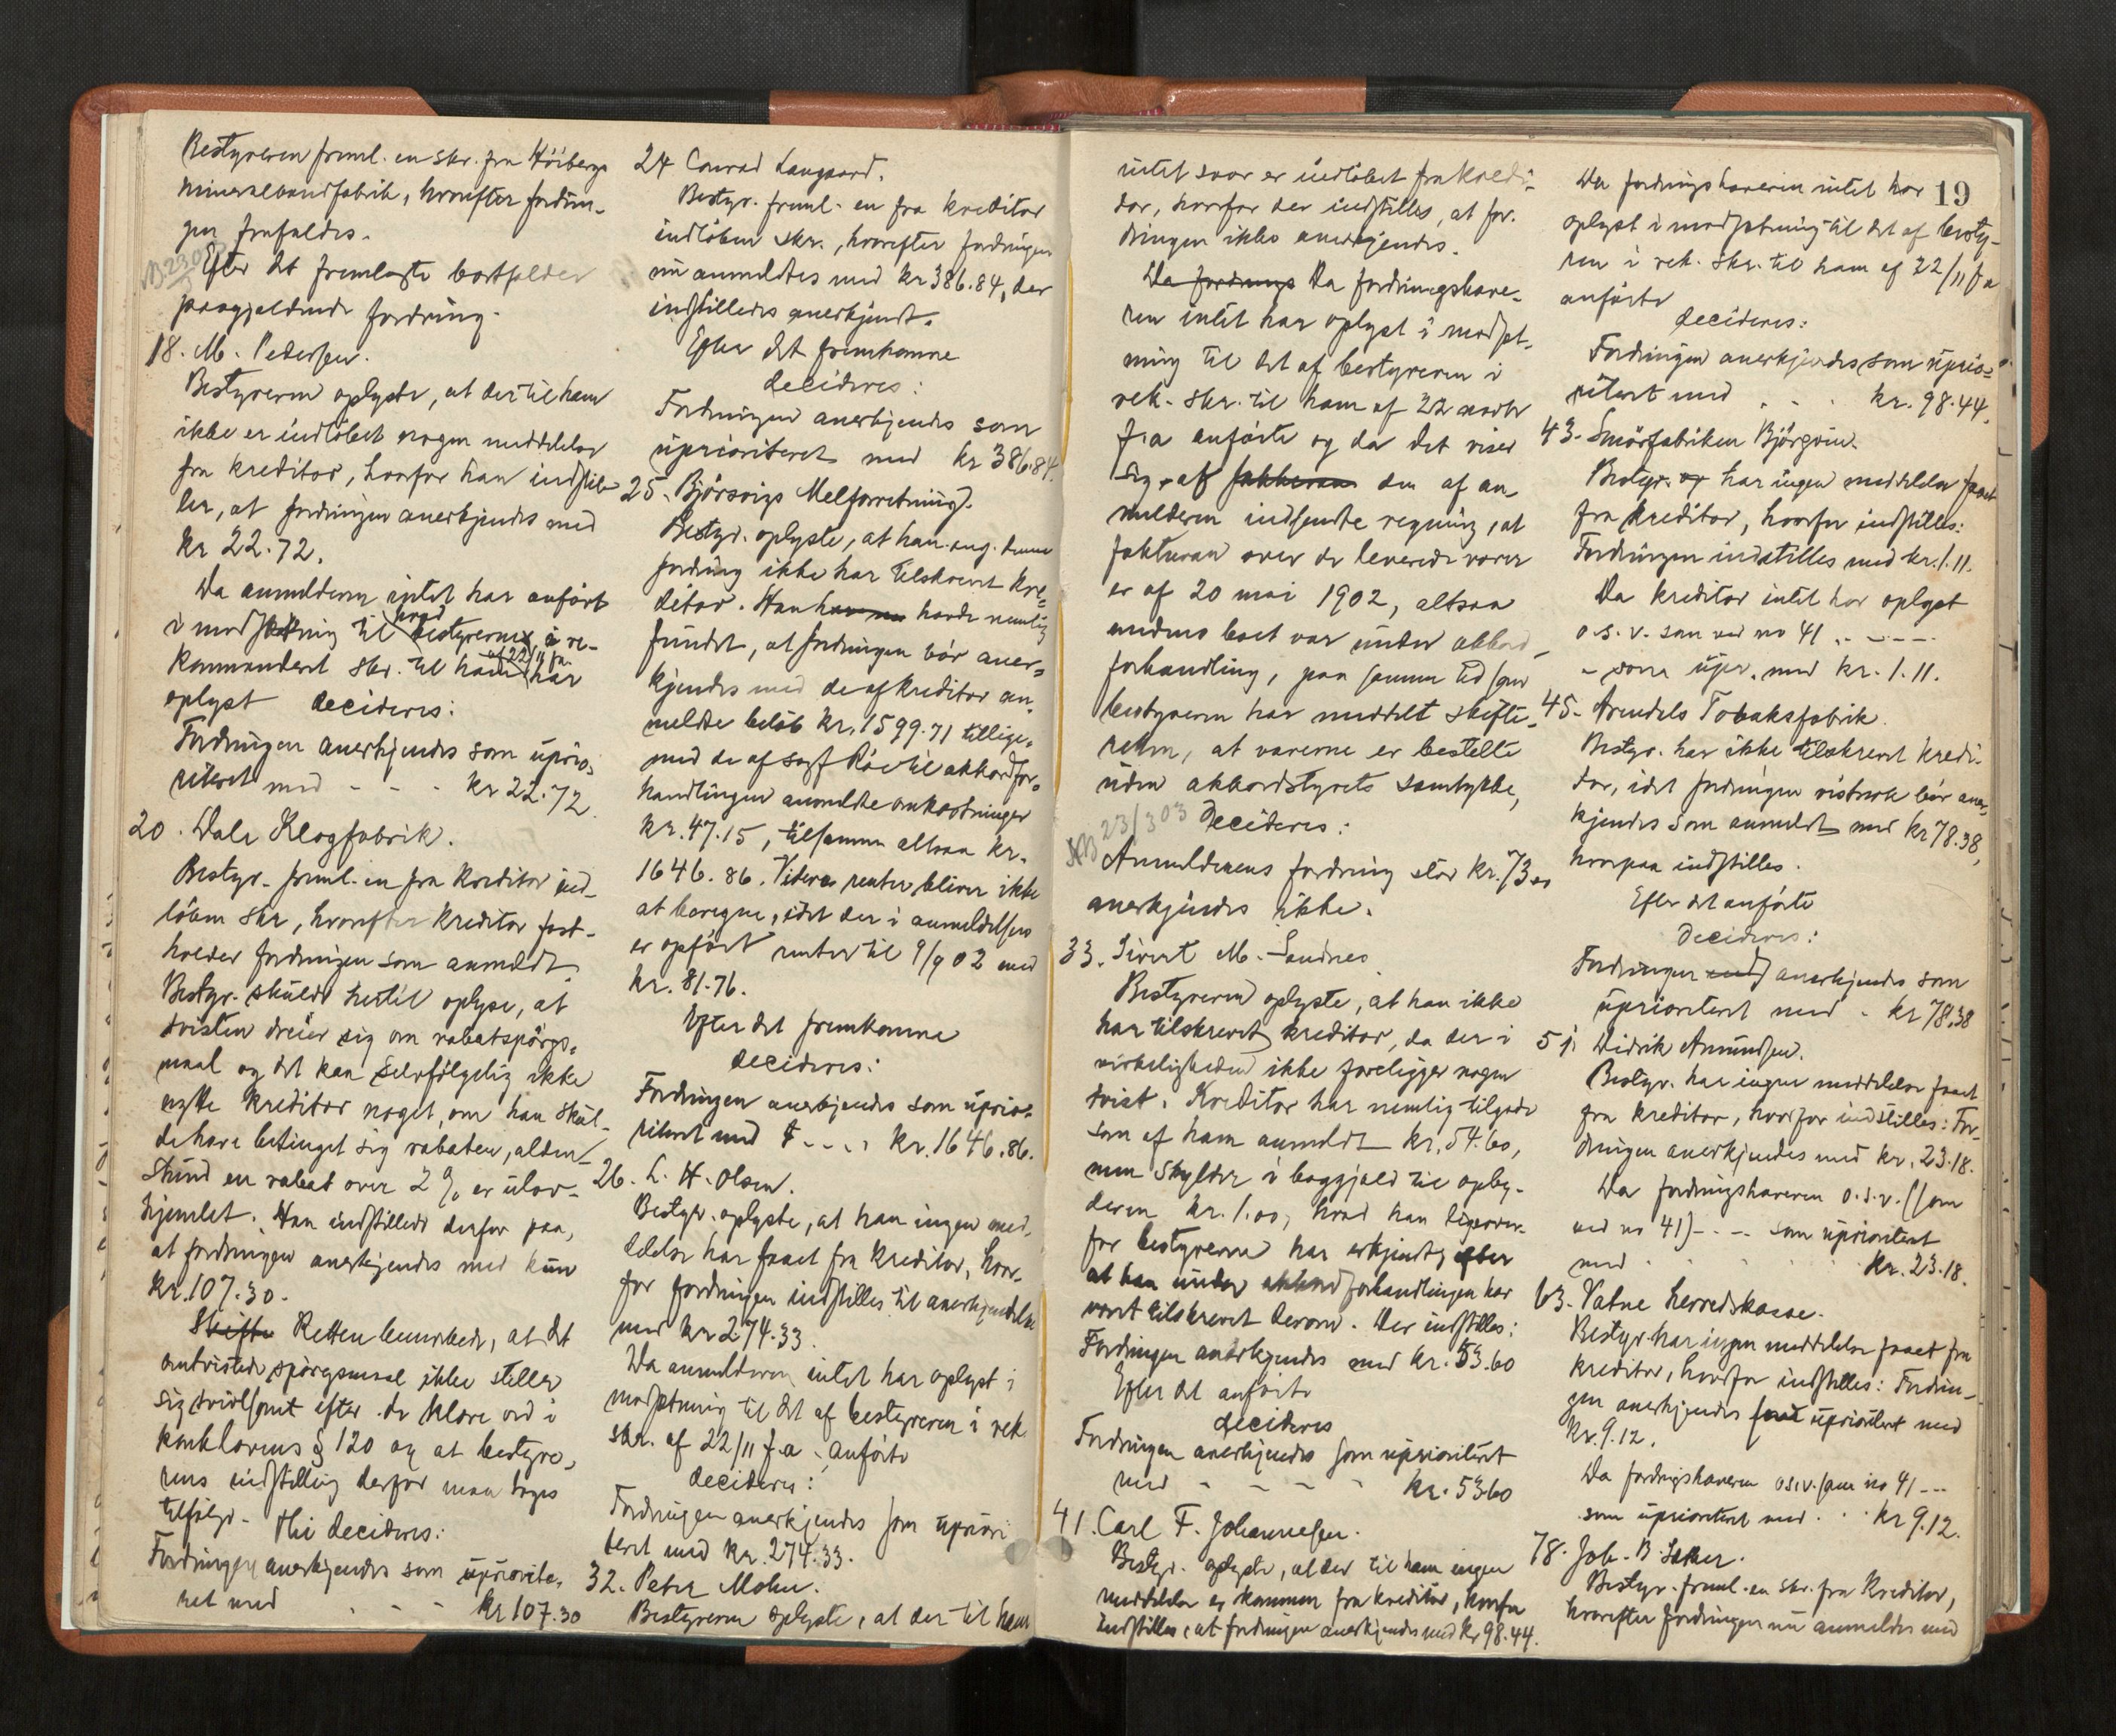 Bestyreren freml. en skr. fra Höibergs
mineralvandfabrik, hvorefter fordrin-
gen frafaldes.
Efter det fremlagte bortfalder
paagjældende fordring.
18. M. Pedersen.
Bestyreren oplyste, at der til ham
ikke er indlöbet nogen meddelelse
fra kreditor, hvorfor han indstil-
ler, at fordringen anerkjendes med
kr 22.72.
Da anmelderen intet har anført
i modsætning til hvad bestyreren i re-
kommanderet skr. til ham af 22/11 f.a. har
oplyst decideres:
Fordringen anerkjendes som uprio-
riteret med - - - kr 22.72.
20. Dale Klogfabrik.
Bestyr. freml. en fra kreditor ind-
löben skr, hvorefter kreditor fast-
holder fordringen som anmeldt.
Bestyr. skulde hertil oplyse, at
tvisten dreier sig om rabatspörgs-
maal og det kan selvfölgelig ikke
nytte kreditor noget, om han skul-
de have betinget sig rabaten, alden-
stund en rabat over 2 % er ulov-
hjemlet. Han indstillede derfor paa,
at fordringen anerkjendes med kun
kr. 107.30.
Skifte Retten bemærkede, at det
omtvistede spörgsmaal ikke stiller
sig tvivlsomt efter de klare ord i
konklovens § 120 og at bestyre-
rens indstilling derfor maa tages
tilfølge. Thi decideres:
Fordringen anerkjendes som uprioite-
ret med . - - kr 107.30
24 Conrad Langaard.
Bestyr. freml. en fra kreditor
indlöben skr., hvorefter fordringen
nu anmeldtes med kr 386.84, der
indstilledes anerkjendt.
Efter det fremkomne
decideres:
Fordringen anerkjendes som
uprioriteret med kr 386.84.
25. Björsvigs Melforretning.
Bestyr. oplyste, at han ang. denne
fordring ikke har tilskrevet kre-
ditor. Han har nu havde nemlig
fundet, at fordringen bör aner-
kjendes med de af kreditor an-
meldte belöb kr. 1599.71 tillige-
med de af sagf Röe til akkordfor-
handlingen anmeldte omkostninger
kr. 47.15, tilsammen altsaa kr.
1646.86. Videre renter bliver ikke
at beregne, idet der i anmeldelsen
er opfört renter til 9/9 02 med
kr. 81.76.
Efter det fremkomne
decideres:
Fordringen anerkjendes som uprio-
riteret med - - - - kr. 1646.86.
26. L. H. Olsen.
Bestyr. oplyste, at han ingen med-
delelse har faaet fra kreditor, hvor-
for fordringen indstilles til anerkjendelse
med kr 274.33.
Da anmelderen intet har oplyst i
modsætning til det af bestyreren i rek.
skr. af 22/11 f.a. anførte
decideres:
Fordringen anerkjendes som upriori
teret med kr. 274.33.
32. Peter Mohn.
Bestyreren oplyste, at der til ham
intet svar er indlöbet fra kredi-
tor, hvorfor der indstilles, at for-
dringen ikke anerkjendes.
Da fordrings Da fordringshave-
ren intet har oplyst i modsæt-
ning til det af bestyreren i
rek. skr. til ham af 22 novbr
f.a anførte og da det viser
sig, af fakturaen den af an-
melderen indsendte regning, at
fakturaen over de leverede varer
er af 20 mai 1902, altsaa
medens boet var under akkord-
forhandling, paa samme tid som
bestyreren har meddelt skifte-
retten, at varerne er bestilte
uden akkordstyrets samtykke,
23/3 03 Decideres:
Anmelderens fordring stor kr. 73.00
anerkjendes ikke.
33. Sivert M. Sandnes
Bestyreren oplyste, at han ikke
har tilskrevet kreditor, da der i
virkeligheden ikke foreligger nogen
tvist. Kreditor har nemlig tilgode
som af ham anmeldt kr. 54.60,
men skylder i baggjæld til opby-
deren kr. 1.00, hvad han ligeover-
for bestyreren har erkjendt, efter
at han under akkordforhandlingen har
været tilskrevet derom. Der indstilles:
Fordringen anerkjendes med kr. 53.60
Efter det anførte
decideres
Fordringen anerkjendes som uprioriteret
med - - - - kr. 53.60
41. Carl F. Johannessen.
Bestyr. oplyste, at der til ham ingen
meddelelse er kommen fra kreditor, hvorfor
indstilles, at fordringen anerkjendes med kr 98.44.
19
Da fordringshaveren intet har
oplyst i modsætning til det af besty-
ren i rek. skr. til ham af 22/11 f a
anførte
decideres:
Fordringen anerkjendes som uprio-
riteret med . . . kr. 98.44.
43. Smörfabriken Björgvin.
Bestyr. og har ingen meddelelse faaet
fra kreditor, hvorfor indstilles:
Fordringen indstilles med kr. 1.11.
Da kreditor intet har oplyst
o.s.v. som ved no 41 . - - - -
- som upr. med kr. 1.11.
45. Arendals Tobaksfabrik.
Bestyr. har ikke tilskrevet kredi-
tor, idet fordringen vistnok bör aner-
kjendes som anmeldt med kr 78.38,
hvorpaa indstilles.
Efter det anførte
decideres:
Fordringen med anerkjendes som
uprioriteret med - kr 78.38
51. Didrik Amundsen.
Bestyr. har ingen meddelelse faaet
fra kreditor, hvorfor indstilles: For-
dringen anerkjendes med kr. 23.18.
Da fordringshaveren o.s.v. (som
ved no 41) - - - som uprioriteret
med . . . . kr. 23.18.
63. Vatne herredskasse.
Bestyr. har ingen meddelelse faaet fra
kreditor, hvorfor indstilles: Fordrin-
gen anerkjendes uprioritert med
kr. 9.12.
Da fordringshaveren o s.v. som no 41 ---
som uprioriteret med . . . kr 9.12.
78. Joh. B. Sæther.
Bestyr. freml. en skr. fra kreditor,
hvorefter fordringen nu anmeldes med